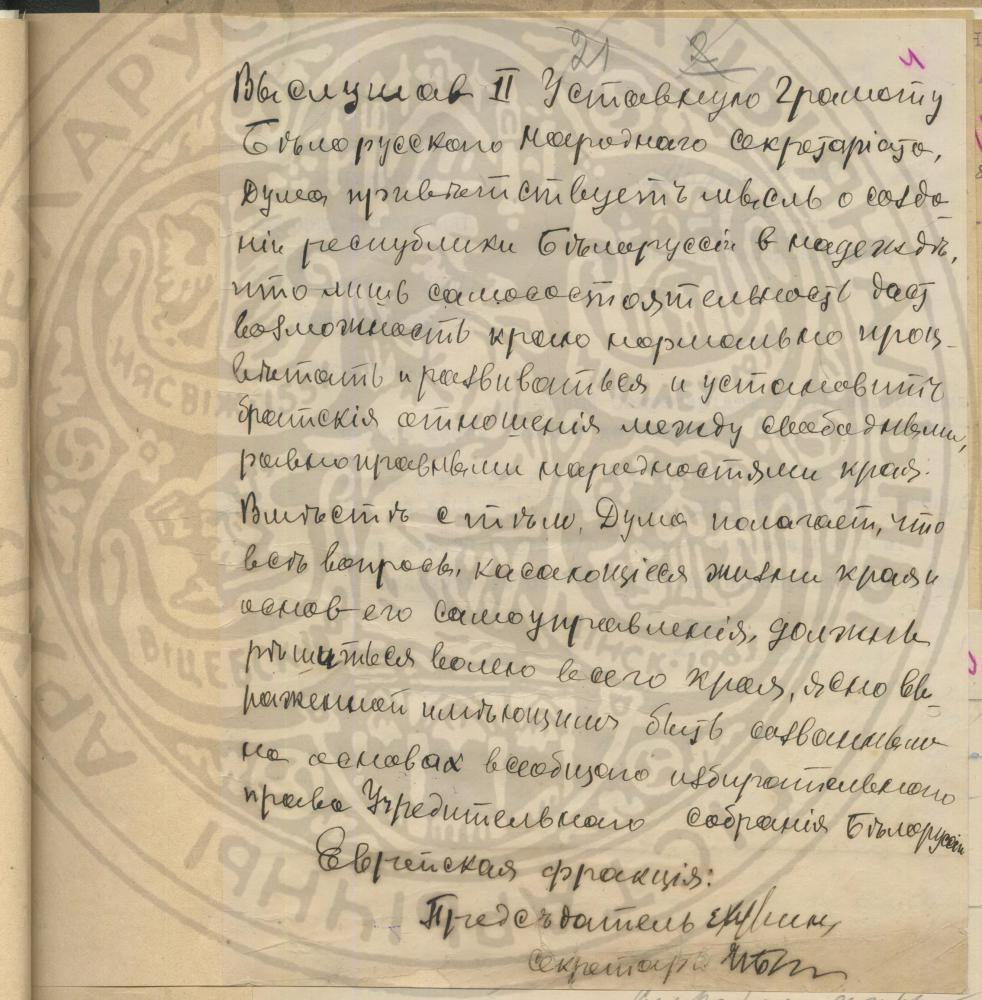 21 2
Выслушав II Уставную Грамоту
Бѣлорусскаго Народнаго Секретаріата,
Дума привѣтствуетъ мысль о созда-
ніи республики Бѣлоруссіи в надеждѣ,
что лишь самосостоятельность даст
возможность краю нормально проц-
вѣтать и развиваться и установить
братскія отношенія между свободными,
равноправными народностями края.
Вмѣстѣ с тѣм, Дума полагает, что
всѣ вопросы, касающіеся жизни края и
основ его самоуправленія, должны
рѣшиться волею всего края, ясно вы-
раженной имѣющим быть созванным
на основах всеобщаго избирательнаго
права Учредительнаго Собранія Бѣлоруссіи
Еврейская фракція:
Предсѣдатель
Секретарь